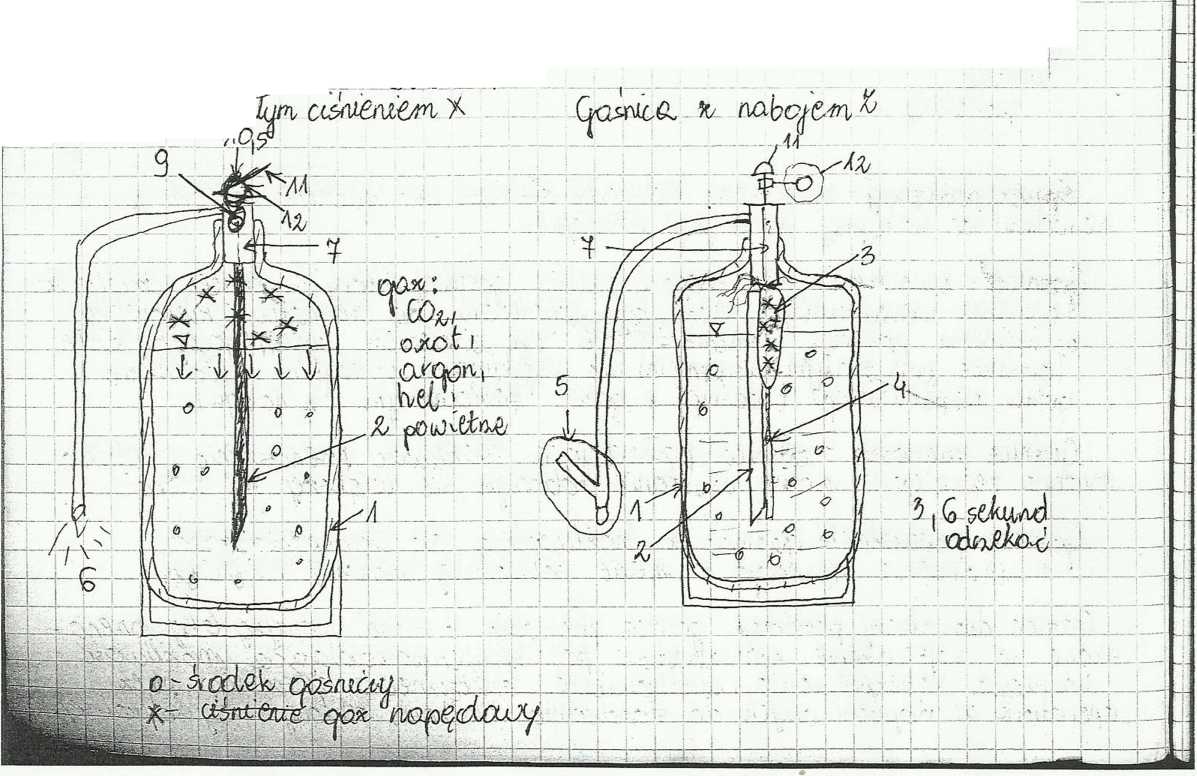 Tym ciśnieniem X
Gaśnica z nabojem Z
0,5
11
9
11
12
12
7
7
3
gaz:
CO2,
azot,
argon,
hel,
powietrze
2
5
4
1
1
2
6
3, 6 sekund
odczekać
o - środek gaśniczy
x - ciśnienie gaz napędowy